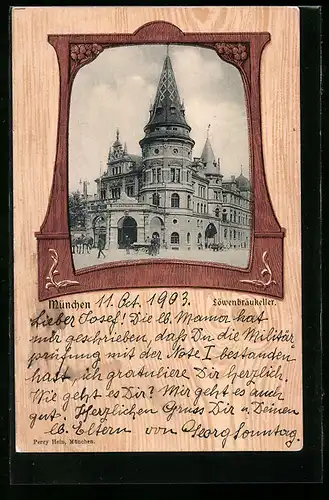 München 11. Oct. 1903. Löwenbräukeller.
Lieber Josef! Die lb. Mama hat
mir geschrieben, daß Du die Militär
prüfung mit der Note I bestanden
hast, ich gratuliere Dir herzlich.
Wie geht es Dir? Mir geht es auch
gut. Herzlichen Gruss Dir u. Deinen
lb. Eltern von Georg Sonntag.
Percy Hein, München.